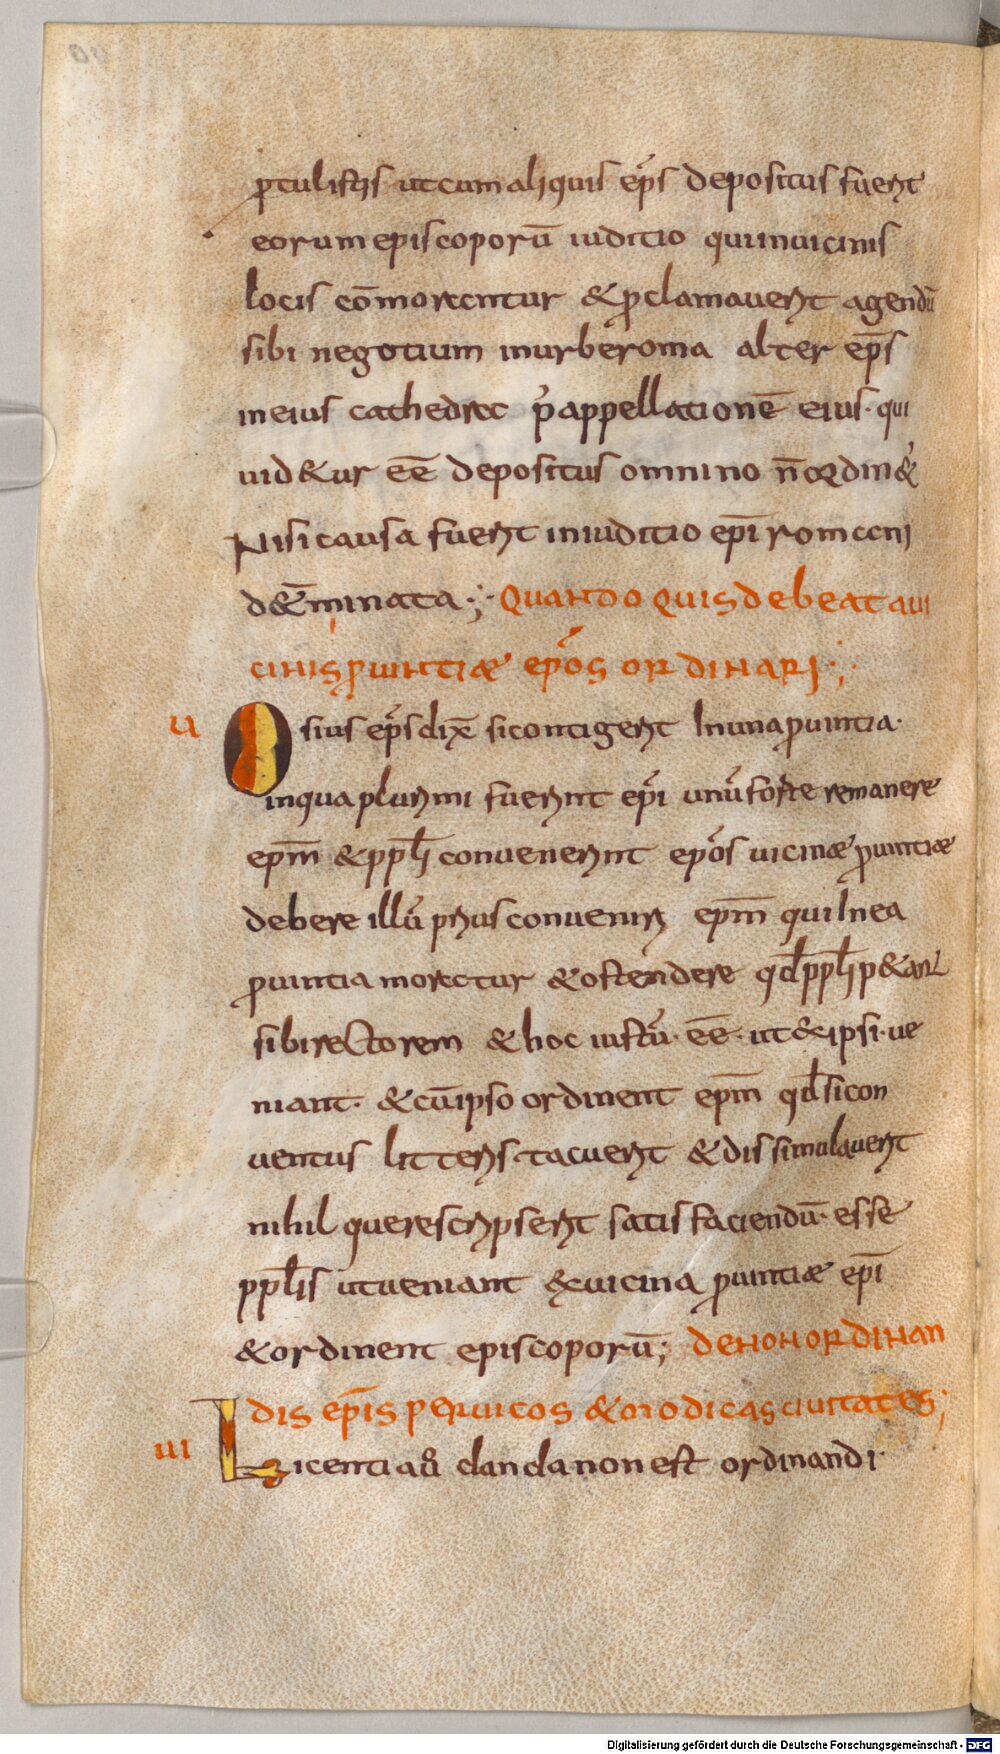 ptulistis ut cum aliquis ep̄s depositus fuerit
eorum episcoporū iuditio qui in uicinis
locis cōmorentur & proclamauerit agendū
sibi negotium in urbe roma alter ep̄s
in eius cathedra p̄ appellationē eius · qui
uid&ur eē depositus omnino n̄ ordin&
Nisi causa fuerit in iuditio ep̄i romani
d&̄minata ·;· QUANDO QUIS debeat a ui
cinis puintiæ ep̄os ORDINARI ·;·
u Osius ep̄s dix̄ si contigerit In una puintia ·
in qua plurimi fuerint ep̄i unū forte remanere
ep̄m & ppłi conuenerint ep̄os uicinæ puintiæ
debere illū prius conuenire ep̄m qui In ea
puintia moratur & ostendere qđ ppłi p&ant
sibi rectorem & hoc iustū · eē · ut & ipsi · ue
niant · & cū ipso ordinent ep̄m qđ si con
uentus litteris tacuerit & dissimulauerit
nihil que rescripserit satis faciendū · esse
ppłis ut ueniant & uicina puintiæ ep̄i
& ordinent episcoporū; de NON ORDINAN
dis ep̄is p eruicos & modicas ciuitates;
ui Licentia ū danda non est ordinandi ·
Digitalisierung gefördert durch die Deutsche Forschungsgemeinschaft - DFG